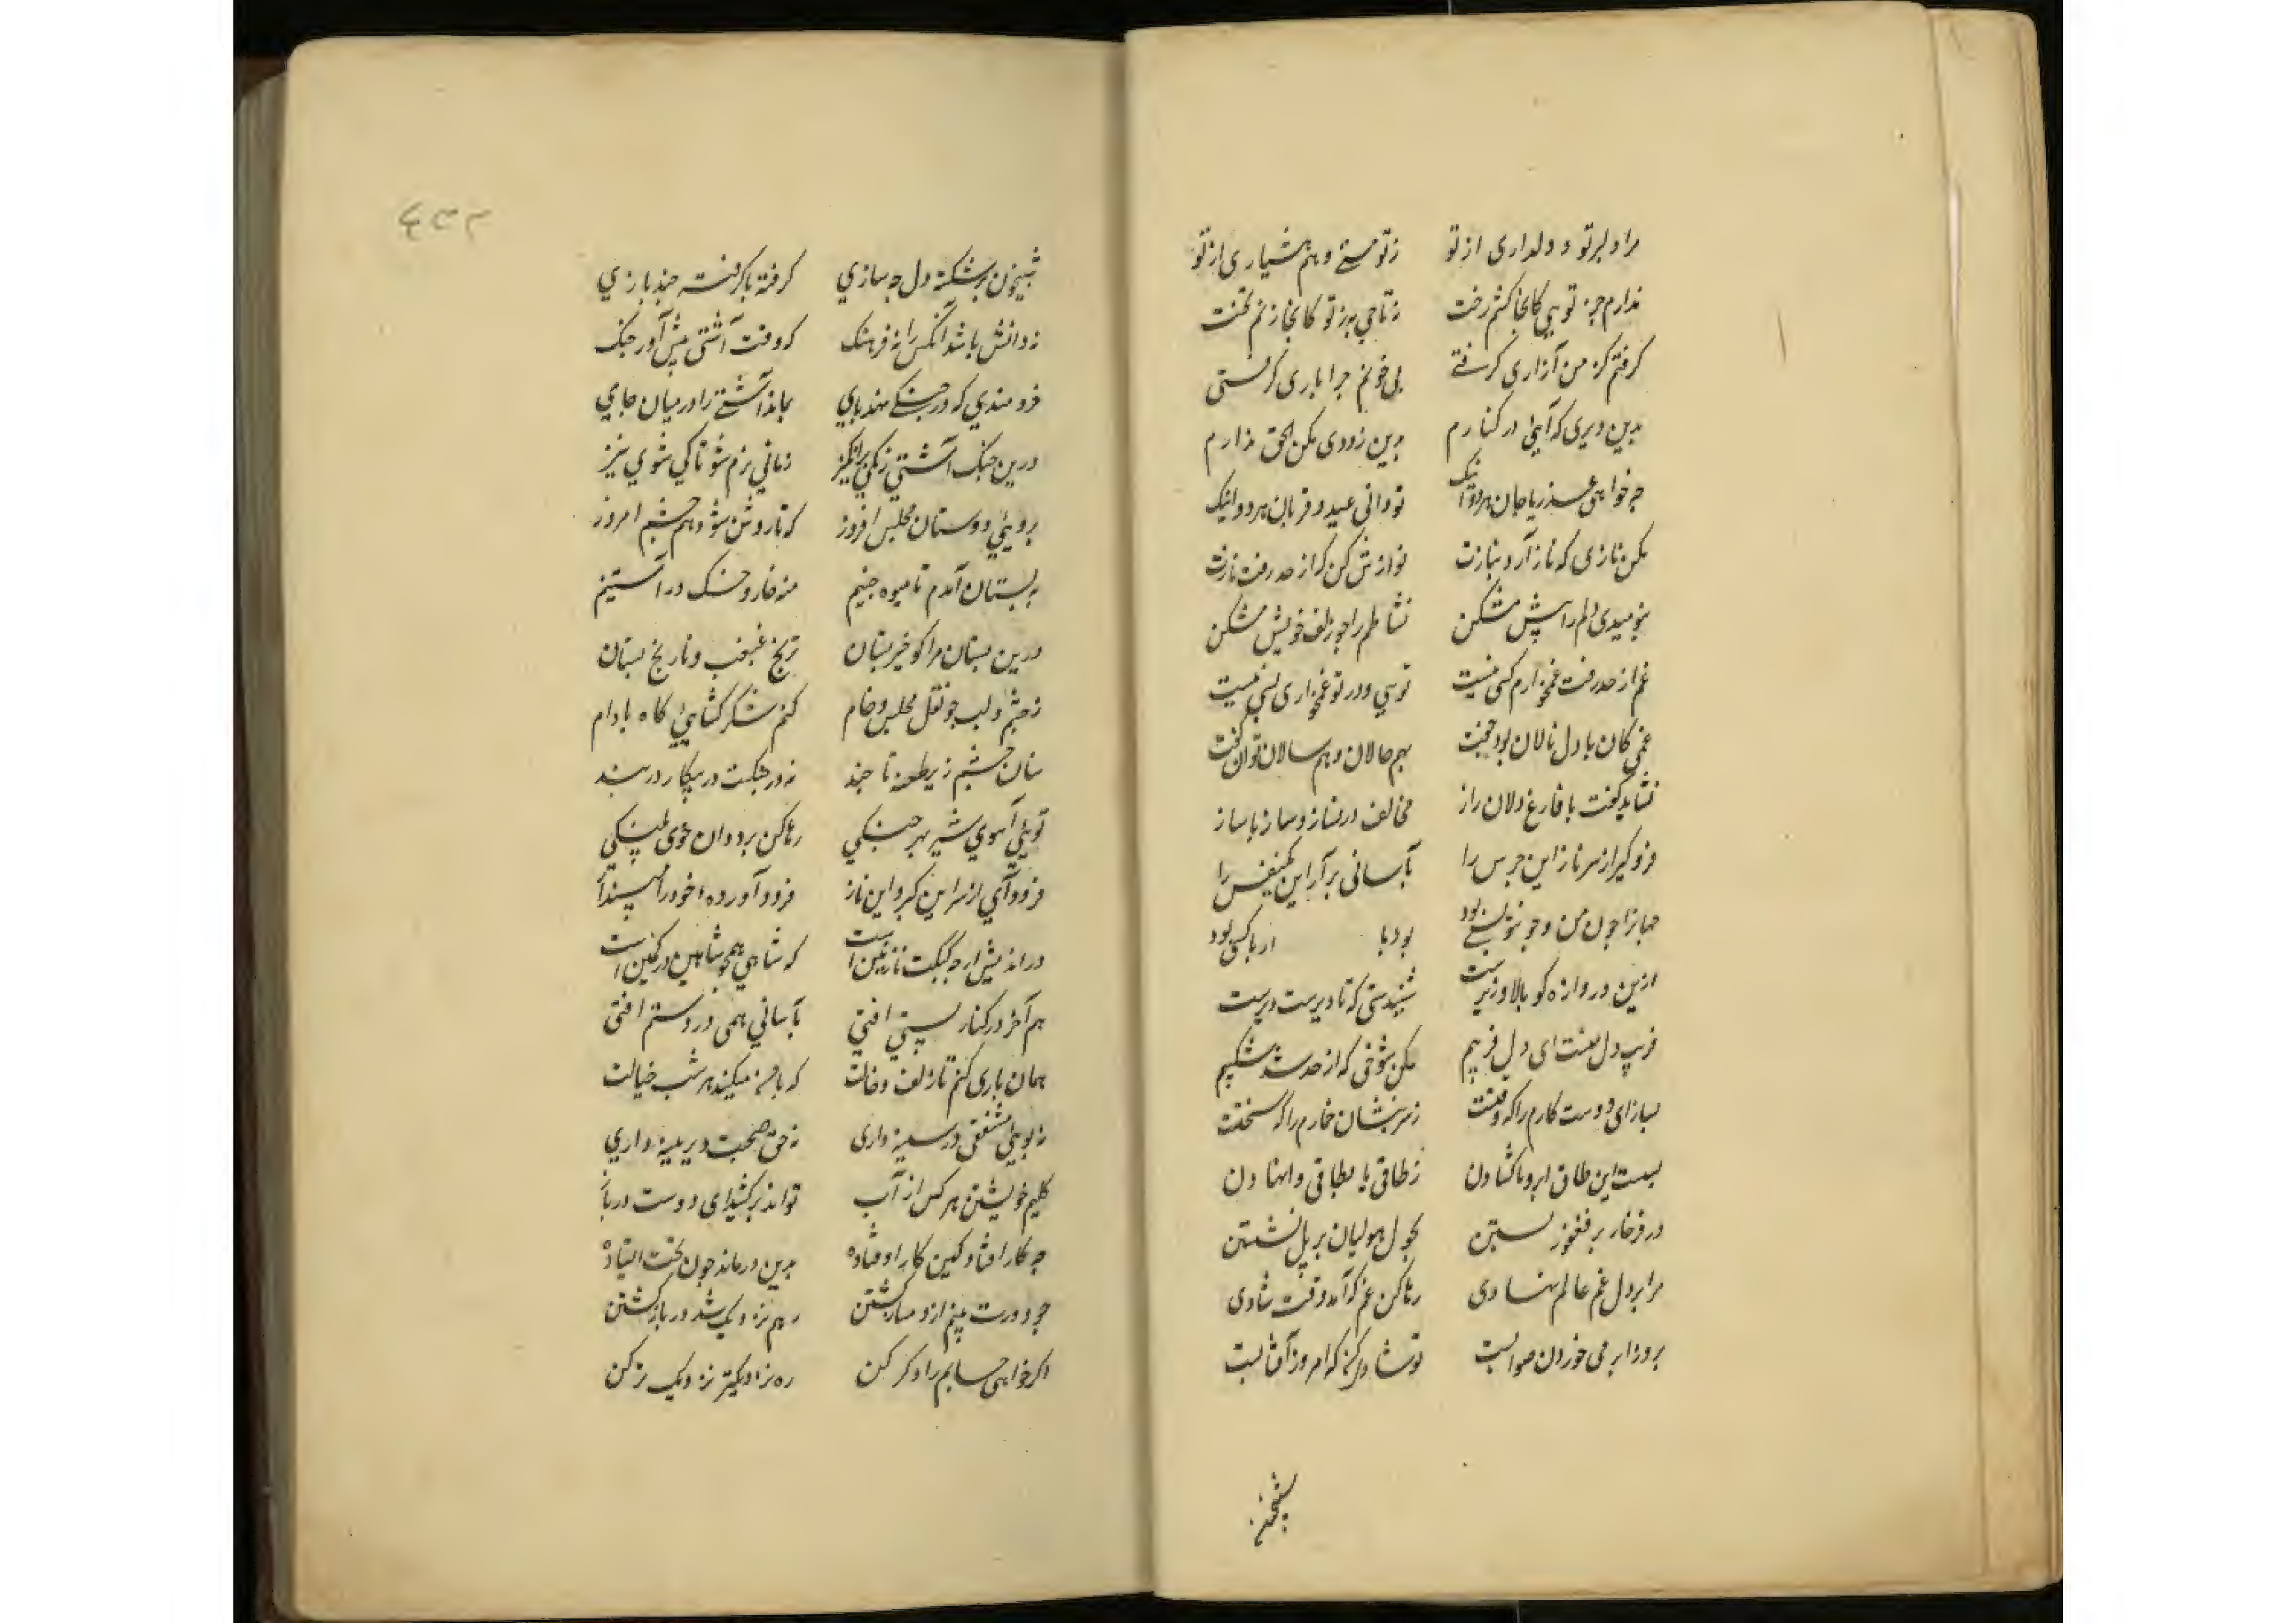 مرا دلبر تو و دلداری از تو زتو مستی و هم هشیاری از تو
ندارم جز تویی کانجا کشم رخت نه تاجی به ز تو کانجا زنم تخت
کرفتم کز من آزاری کرفتی بی خونم چرا باری کرفتی
بدین دیری که آیی در کنارم بدین زودی مکن الحق ندارم
چه خواهی عذر یا جان هر دو اینک تو دانی عید و قربان هر دو اینک
مکن نازی که ناز آرد نیازت نوازش کن که از حد رفت نازت
بنومیدی دلم را پیش مشکن نشاطم را چو زلف خویش مشکن
غم از حد رفت غمخوارم کسی نیست تویی و در تو غمخواری بسی نیست
غمی کان با دل نالان بود جفت بهم حالان و هم سالان توان گفت
نشاید گفت با فارغ دلان راز مخالف درنسازد ساز با ساز
فرو کیر از سر ناز این جرس را بآسانی برآر این یکنفس را
جهانرا چون من و چو تو بسی بود بود با ار با کسی بود
ازین دروازه کو بالا و زیرست شنیدستی که تا دیرست دیرست
فریب دل بست ای دل فریبم مکن شوخی که از حد شد شکیبم
بساز ای دوست کارم را که وقتست ز سر بنشان خارم را که سختست
ببست این طاق ابرو ناکشادن ز طاقی با بطاقی وانهادن
در فرخار بر فغفور بستن بجول هولیان بر پل نشستن
مرا بر دل غم عالم نهادی رها کن غم که آمد وقت شادی
بروز ابر می خوردن صوابست تو شادی کن که امروز آفتابست
شبیخون
شبیخون بر شکسته دل چه سازی کرفته با کرفته چند بازی
نه دانش باشد آنکس را نه فرهنک که وقت آشتی پیش آورد جنک
خردمندی که در جنکی نهد پای بماند آشتی را در میان جای
درین جنک آشتی رنکی برانکیز زمانی نرم شو تا کی شوی تیز
برویی دوستان مجلس افروز که تا روشن شود هم چشم امروز
به بستان آمدم تا میوه چینم منه خار و خسک در آستینم
درین بستان مرا کو خیز بستان ترنج غبغب و نارنج بستان
ز چشم و لب چو نقل مجلس و جام کنم شکر کشایی کاه بادام
سنان خشم زیر طعنه تا چند نه در جنکت در پیکار در بند
تویی آهوی شیر بهر جنکی رها کن بر ددان خوی پلنکی
فرود آی از سر این کبر و این ناز فرود آورده خود را میندآز
در اندیش ار چه کبکت نازنین است که شاهی همچو شاهین در کمین است
هم آخر در کنار پستی افتی بآسانی همی در دستم افتی
همان بازی کنم تا زلف و خالت که با من میکند هر شب خیالت
نه بویی مشفقی در سینه داری نه حق صحبت دیرینه داری
کلیم خویشتن هر کس از آب تواند برکشید ای دوست دریآب
چه کار افتاد کین کار اوفتاده بدین درمانده چون بخت ایستاده
چو دورت بینم از دمساز کشتن رهم نزدیک شد در باز کشتن
اکر خواهی حسابم را دکر کن ره نزدیک نزدیکتر کن